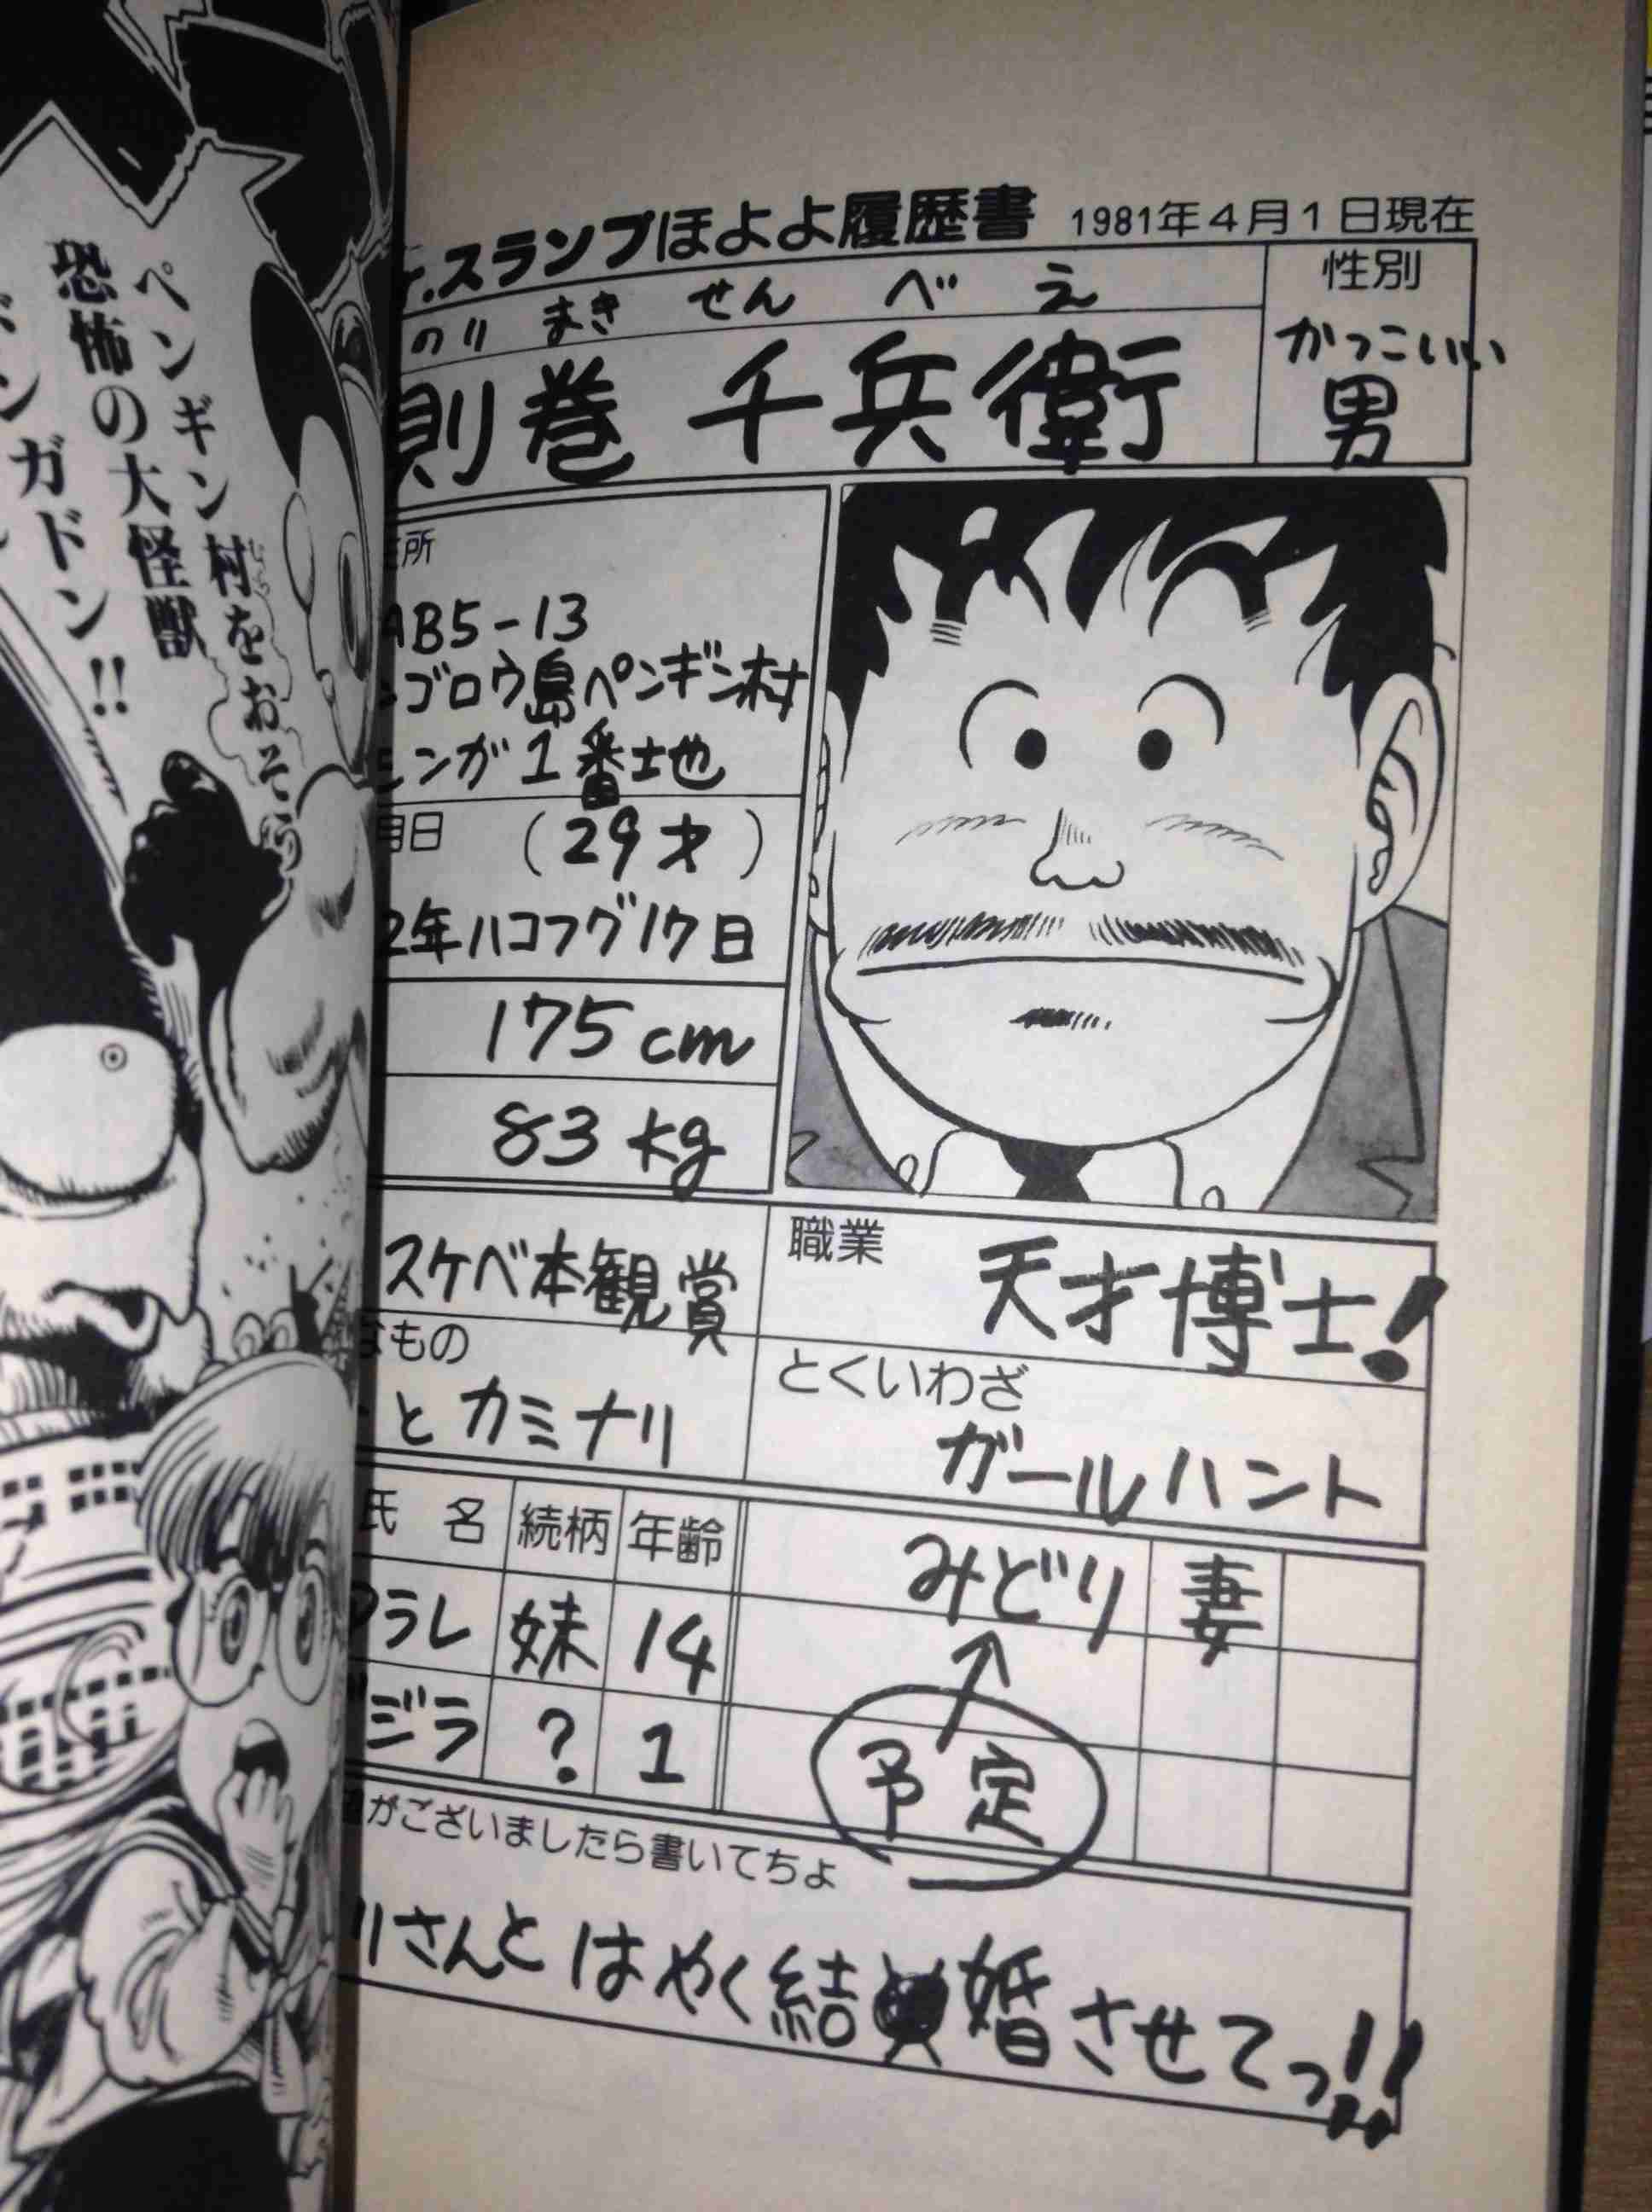 ペンギン村をおそう
むら
恐怖の大怪獣
ンガドン!!
r.スランプほよよ履歴書 1981年4月1日現在
のり まき せん べ え
則巻 千兵衛
性別
かっこいい
男
所
AB5-13
ゴロウ島ペンギン村
ンガ1番地
月日 (29才)
2年ハコフグ17日
175cm
83kg
スケベ本観賞
職業
天才博士!
なもの
とカミナリ
とくいわざ
ガールハント
氏名 続柄 年齢
アラレ 妹 14
ジラ ? 1
みどり 妻
予定
がございましたら書いてちょ
りさんとはやく結婚させてっ!!